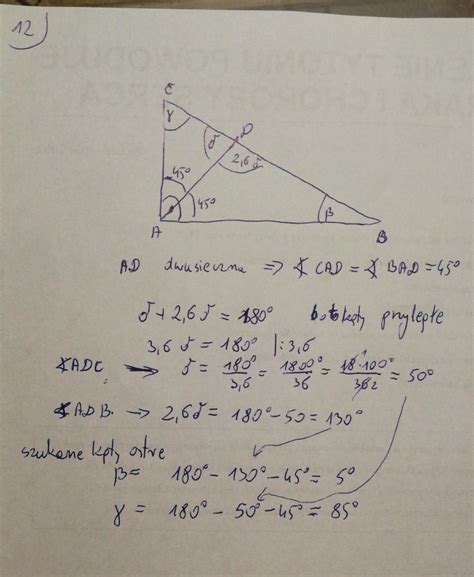 12)
C
γ
δ
D
2,6 δ
45°
45°
β
A
B
AD dwusieczna => ∢ CAD = ∢ BAD = 45°
δ + 2,6 δ = 180° kąty przyległe
3,6 δ = 180° |:3,6
∢ADC → δ = 180°/3,6 = 1800°/36 = 18·100°/36 2 = 50°
∢ADB. → 2,6δ = 180° - 50 = 130°
szukane kąty ostre
β = 180° - 130° - 45° = 5°
γ = 180° - 50° - 45° = 85°